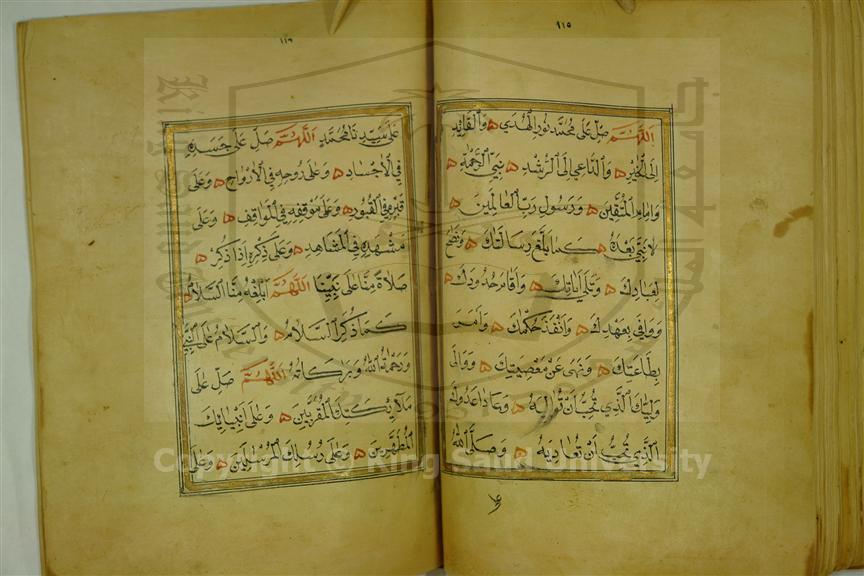 ١١٥
اللهم صل على محمد نور الهدى والقائد
إلى الخير والداعي إلى الرشد نبي الرحمة
وإمام المتقين ورسول رب العالمين
لا نبي بعده كما بلغ رسالتك ونصح
لعبادك وتلى آياتك وأقام حدودك
ووافى بعهدك وأنفذ حكمك وأمر
بطاعتك ونهى عن معصيتك ووالى
وليك الذي تحب أن تواليه وعادا عدوك
الذي تحب أن تعاديه وصلى الله
١١٦
على سيدنا محمد اللهم صل على جسده
في الأجساد وعلى روحه في الأرواح وعلى
قبره في القبور وعلى موقفه في المواقف وعلى
مشهده في المشاهد وعلى ذكره إذا ذكر
صلاة منا على نبينا اللهم أبلغه منا السلام
كما ذكر السلام والسلام على النبي
ورحمة الله وبركاته اللهم صل على
ملائكتك المقربين وعلى أنبيائك
المطهرين وعلى رسلك المرسلين وعلى
Copyright © King Saud University